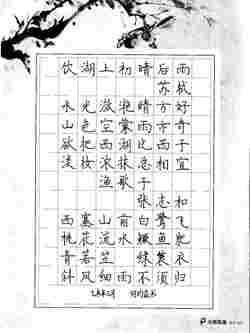 饮湖上初晴后雨
苏轼
水光潋滟晴方好
山色空蒙雨亦奇
欲把西湖比西子
淡妆浓抹总相宜
渔歌子
张志和
西塞山前白鹭飞
桃花流水鳜鱼肥
青箬笠绿蓑衣
斜风细雨不须归